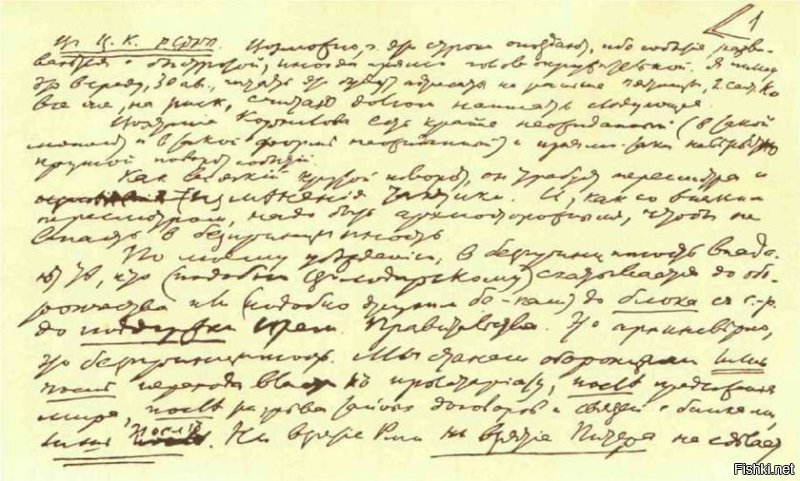 1
В Ц.К. РСДРП. Возможно, ч. эти строки опоздают, ибо события разви-
ваются с быстротой, иногда прямо головокружительной. Я пишу
это в среду, 30 авг., читать это будут адресаты не раньше пятницы, 2 сент. Но
все же, на риск, считаю долгом написать следующее.
Восстание Корнилова есть крайне неожиданный (в такой
момент и в такой форме неожиданный) и прямо-таки невероятно
крутой поворот событий.
Как всякий крутой поворот, он требует пересмотра и
изменения тактики. И, как со всяким
пересмотром, надо быть архиосторожным, чтобы не
впасть в беспринципность.
По моему убеждению, в беспринципность впада-
ют те, кто (подобно Володарскому) скатывается до обо-
рончества или (подобно другим б-кам) до блока с с.-р.
до поддержки Врем. Правительства. Это архиневерно,
это беспринципность. Мы станем оборонцами лишь
после перехода власти к пролетариату, после предложения
мира, после разрыва тайных договоров и связей с банками,
лишь после. Ни взятие Риги ни взятие Питера не сделает
Fishki.net